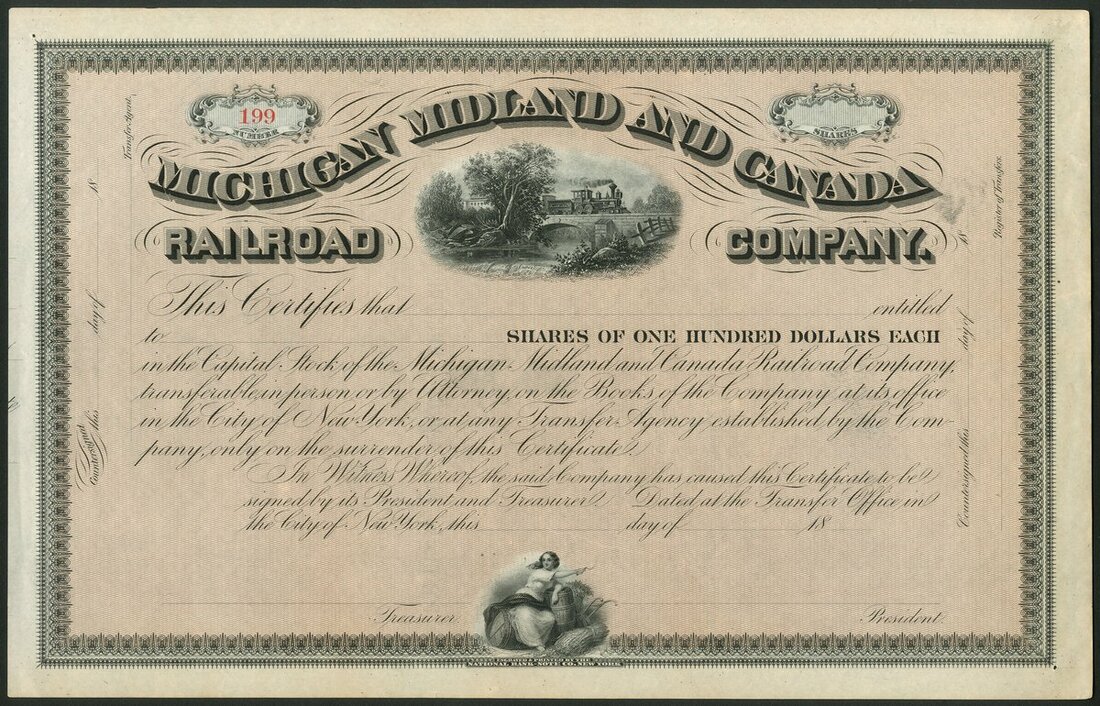 199
NUMBER
SHARES
MICHIGAN MIDLAND AND CANADA
RAILROAD COMPANY.
This Certifies that entitled
to SHARES OF ONE HUNDRED DOLLARS EACH
in the Capital Stock of the Michigan Midland and Canada Railroad Company,
transferable, in person or by Attorney, on the Books of the Company at its office
in the City of New York, or at any Transfer Agency established by the Com-
pany, only on the surrender of this Certificate.
In Witness Whereof, the said Company has caused this Certificate to be
signed by its President and Treasurer. Dated at the Transfer Office in
the City of New York, this day of 18
Treasurer. President.
NATIONAL BANK-NOTE CO. NEW YORK
Countersigned this day of 18
Transfer Agent.
Countersigned this day of 18
Register of Transfers.